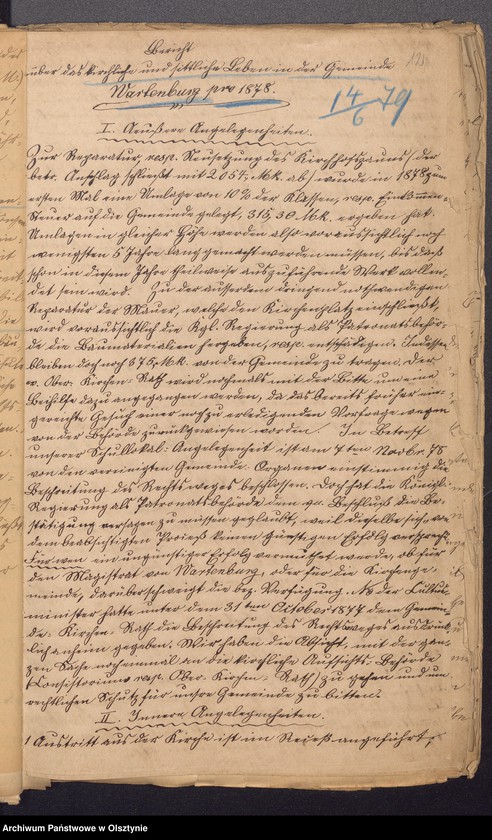 Bericht
über das kirchliche und sittliche Leben in der Gemeinde
Wartenburg pro 1878.
14/6 79
I. Aeußere Angelegenheiten.
Zur Reparatur, resp. Neusetzung des Kirchhofszauns (der
betr. Anschlag schließt mit 2051, Mk. ab) wurde in 1878 zum
ersten Mal eine Umlage von 10% der Klassen, resp. Einkommen-
Steuer auf die Gemeinde gelegt, 315,30 Mk. ergeben hat.
Umlagen in gleicher Höhe werden also voraussichtlich noch
wenigstens 5 Jahre lang gemacht werden müssen, bis das
schon in diesem Jahre theilweise auszuführende Werk vollen-
det sein wird. Zu der außerdem dringend nothwendigen
Reparatur der Mauer, welche den Kirchenplatz einschließt,
wird voraussichtlich die Kgl. Regierung als Patronatsbehör-
de die Baumaterialien hergeben, resp. entschädigen. Indessen
bleiben doch noch 375, Mk. von der Gemeinde zu tragen. Der
Ober-Kirchen-Rath wird nochmals mit der Bitte um eine
Beihilfe dazu angegangen werden, da das bereits früher ein-
gereichte Gesuch einer noch zu erledigenden Vorfrage wegen
von der Behörde zurückgewiesen worden. In Betreff
unserer Schullokal-Angelegenheit ist am 7ten Novbr. 78
von den vereinigten Gemeinde-Organen einstimmig die
Beschreitung des Rechtsweges beschlossen. Doch hat die Königl.
Regierung als Patronatsbehörde dem qu. Beschluß die Be-
stätigung versagen zu müssen geglaubt, weil dieselbe sich von
dem beabsichtigten Prozeß keinen günstigen Erfolg verspricht.
Für wen ein ungünstiger Erfolg vermuthet werde, ob für
den Magistrat von Wartenburg, oder für die Kirchenge-
meinde, darüber schweigt die bez. Verfügung. NB der Cultus-
minister hatte unter dem 31ten October 1877 dem Gemein-
de-Kirchen-Rath die Beschreitung des Rechtsweges ausdrück-
lich anheim gegeben. Wir haben die Absicht, mit der gan-
zen Sache nocheinmal an die kirchliche Aufsichts-Behörde
(Consistorium resp. Ober-Kirchen-Rath) zu gehen und um
rechtlichen Schutz für unsre Gemeinde zu bitten.
II. Innere Angelegenheiten.
1 Austritt aus der Kirche ist im Receß angeführt;
Archiwum Państwowe w Olsztynie